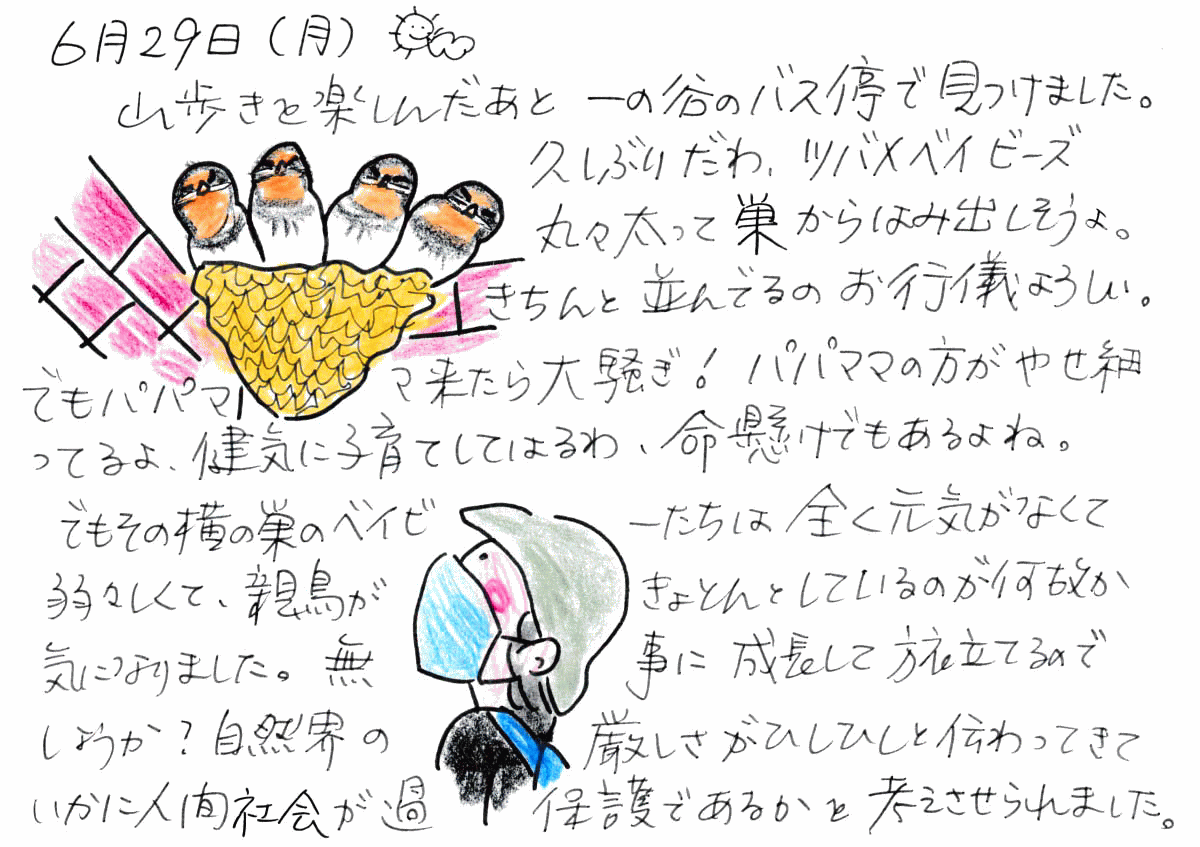 6月29日（月）
山歩きを楽しんだあと 一の谷のバス停で見つけました。
久しぶりだわ、ツバメベイビーズ
丸々太って巣からはみ出しそうよ。
きちんと並んでるの お行儀よろしい。
でもパパママ来たら大騒ぎ！パパママの方がやせ細
ってるよ、健気に子育てしてはるわ、命懸けでもあるよね。
でもその横の巣のベイビーたちは全く元気がなくて
弱々しくて、親鳥がきょとんとしているのが何故か
気になりました。無事に成長して巣立てるので
しょうか？自然界の厳しさがひしひしと伝わってきて
いかに人間社会が過保護であるかと考えさせられました。